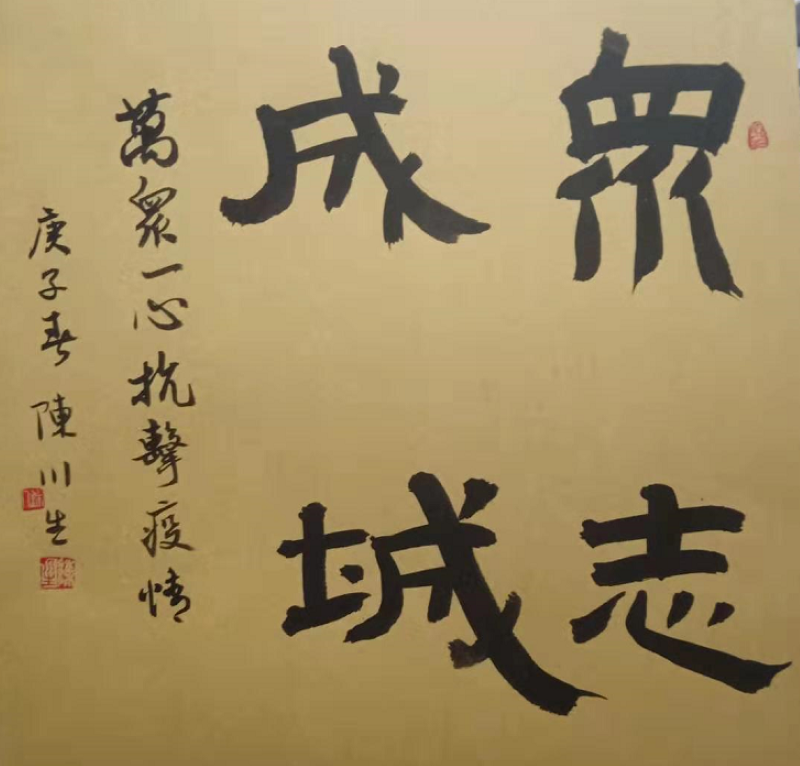 眾志
成城
萬眾一心抗擊疫情
庚子春 陳川生